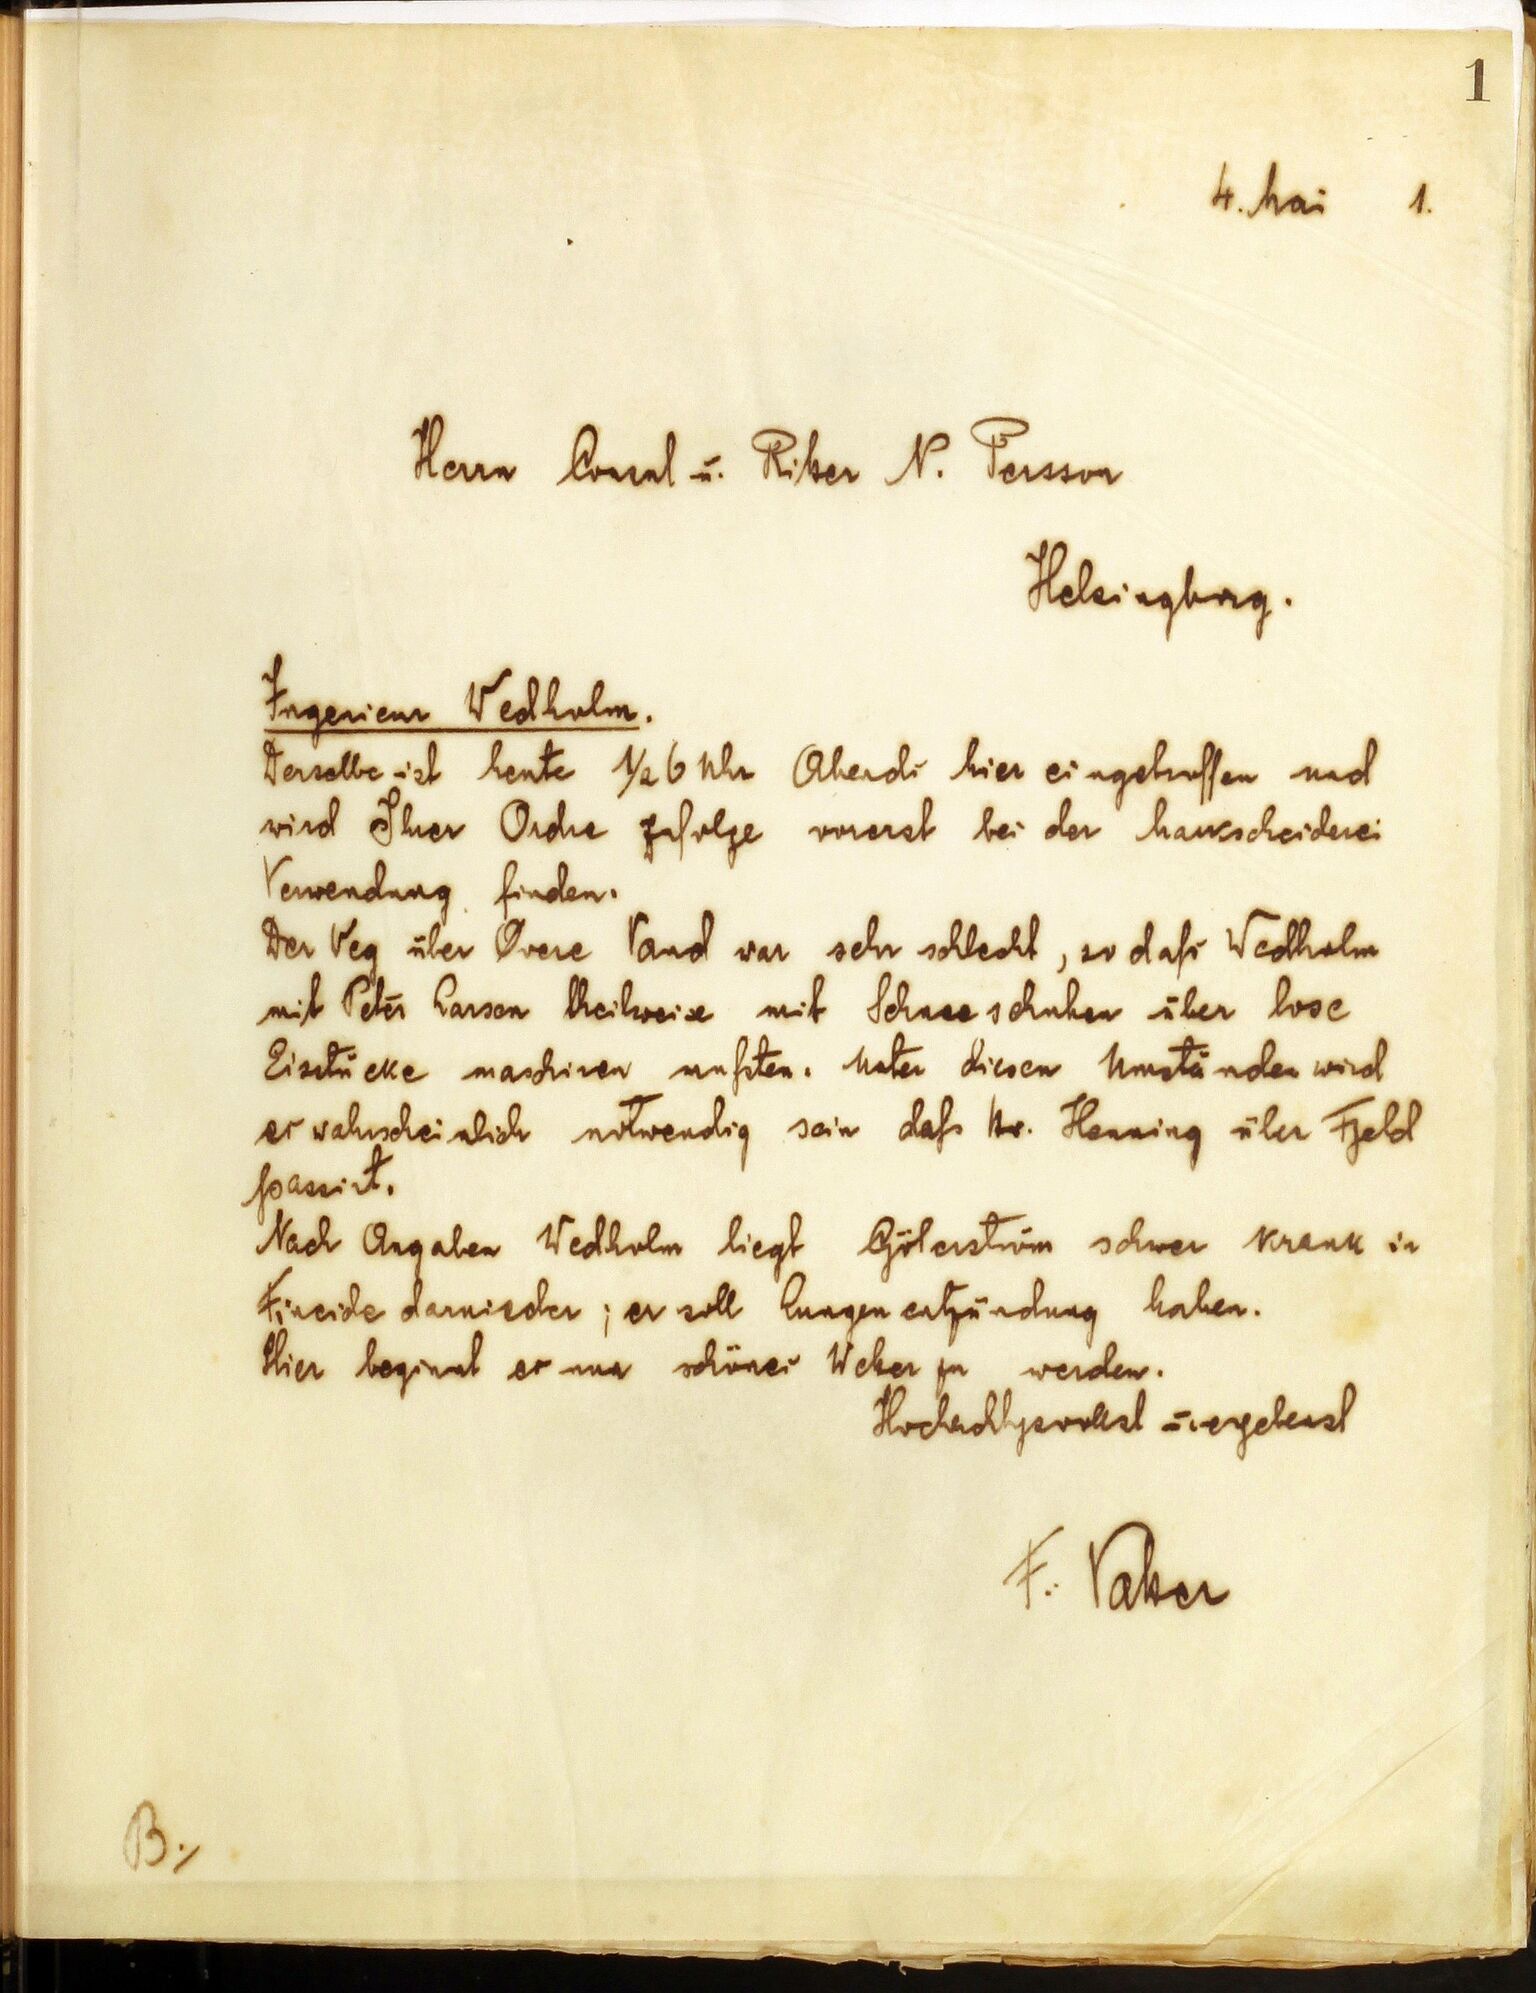 1
4. Mai 1.
Herrn Consul u. Ritter N. Persson
Helsingborg.
Ingenieur Wedholm.
Derselbe ist heute 1/2 6 Uhr Abends hier eingetroffen und
wird Ihrer Ordre zufolge vorerst bei der Markscheiderei
Verwendung finden.
Der Weg über Øvere Vand war sehr schlecht, so dafs Wedholm
mit Peter Larsen theilweise mit Schneeschuhen über lose
Eisstücke maschiren mufsten. Unter diesen Umständen wird
es wahrscheinlich notwendig sein dafs Hr. Henning über Fjeld
passirt.
Nach Angaben Wedholm liegt schwer krank in
Fineide darnieder; er soll Lungenentzündung haben.
Hier beginnt es nun schönes Weter zu werden.
Hochachtgsvollst u. ergebenst
F. Vater
B./